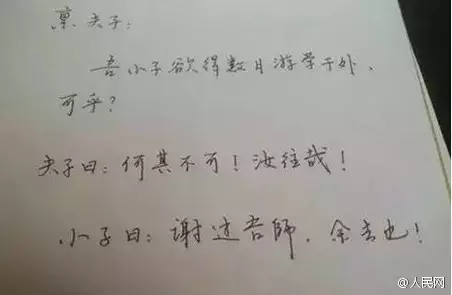 禀夫子：
吾小子欲得数日游学于外，
可乎？
夫子曰：何其不可！汝往哉！
小子曰：谢过吾師，余去也！
@人民网